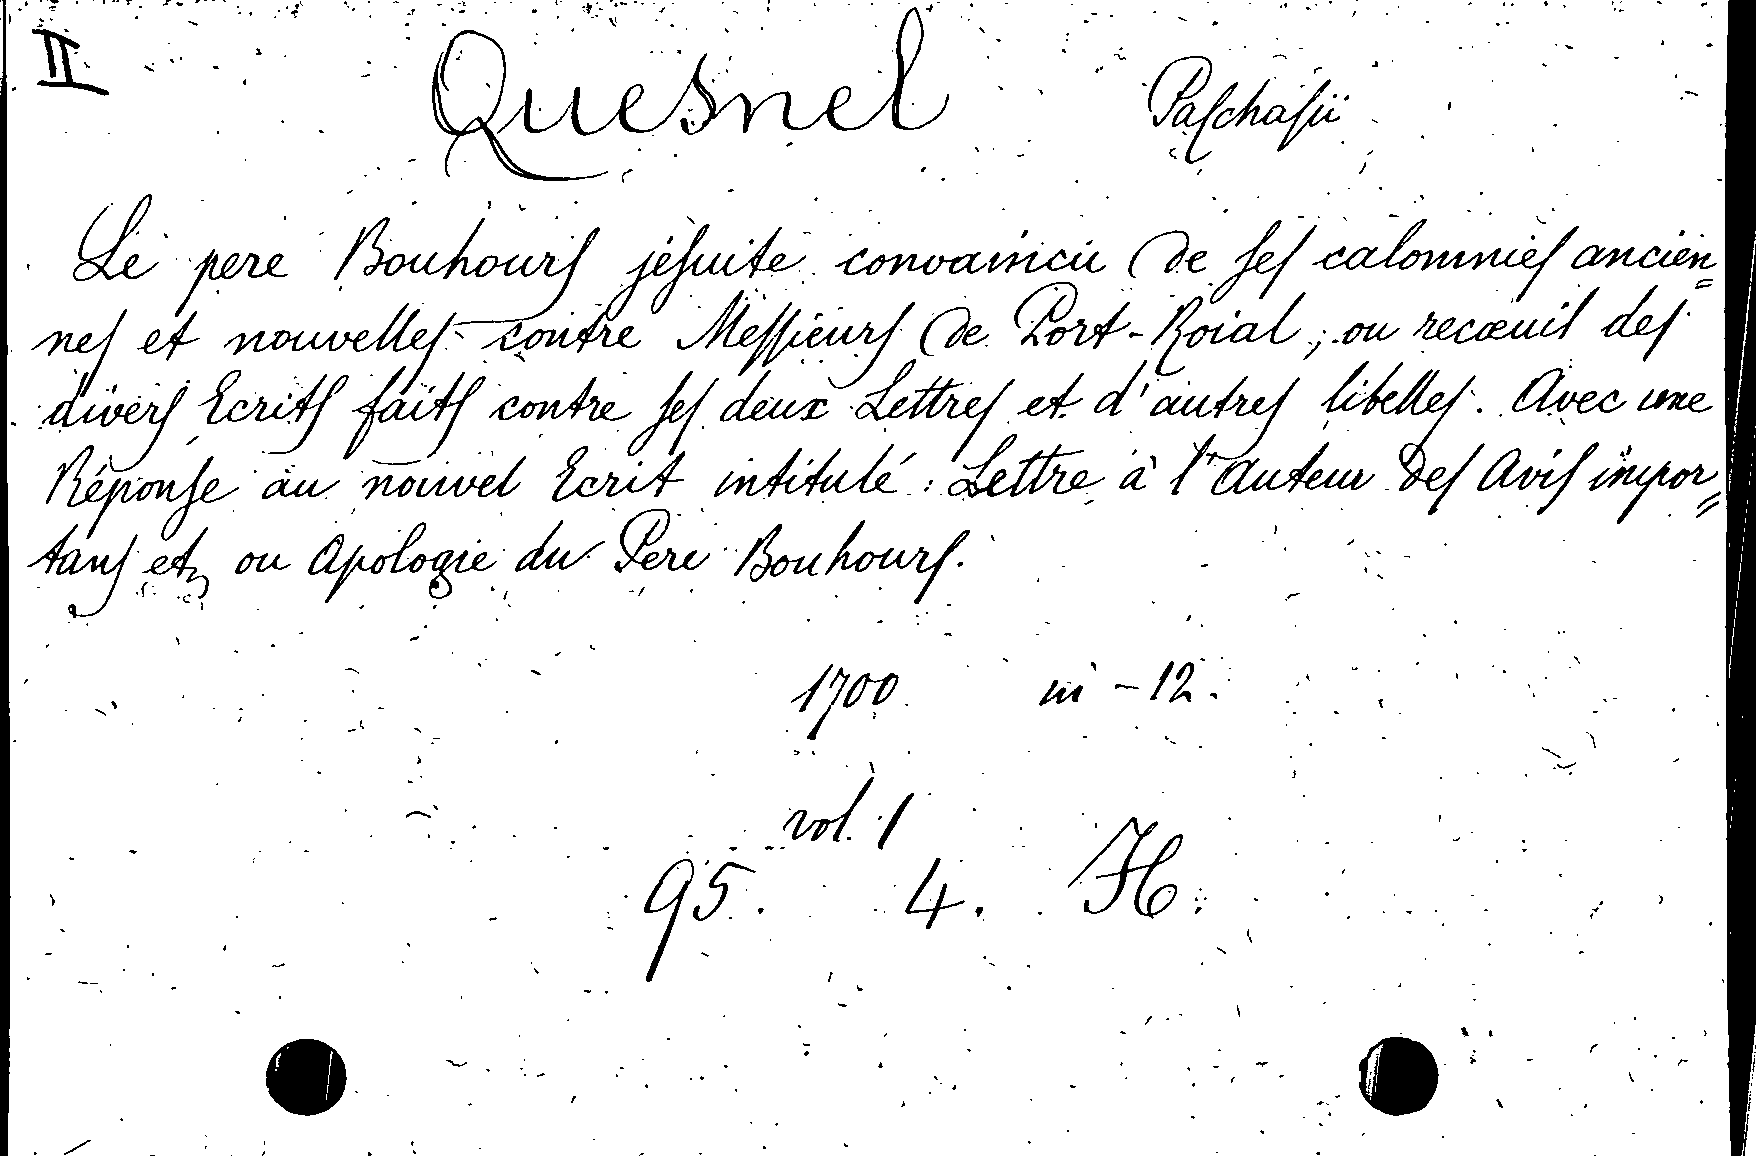 II Quesnel Paschasii
Le pere Bouhours jésuite convaincu de ses calomnies ancien=
nes et nouvelles contre Messieurs de Port-Roial; ou recœuil des
divers Ecrits faits contre ses deux Lettres et d'autres libelles. Avec une
Réponse au nouvel Ecrit intitulé: Lettre à l'Auteur des Avis impor=
tans et, ou Apologie du Pere Bouhours.
1700 in-12.
vol. 1
95. 4. H.